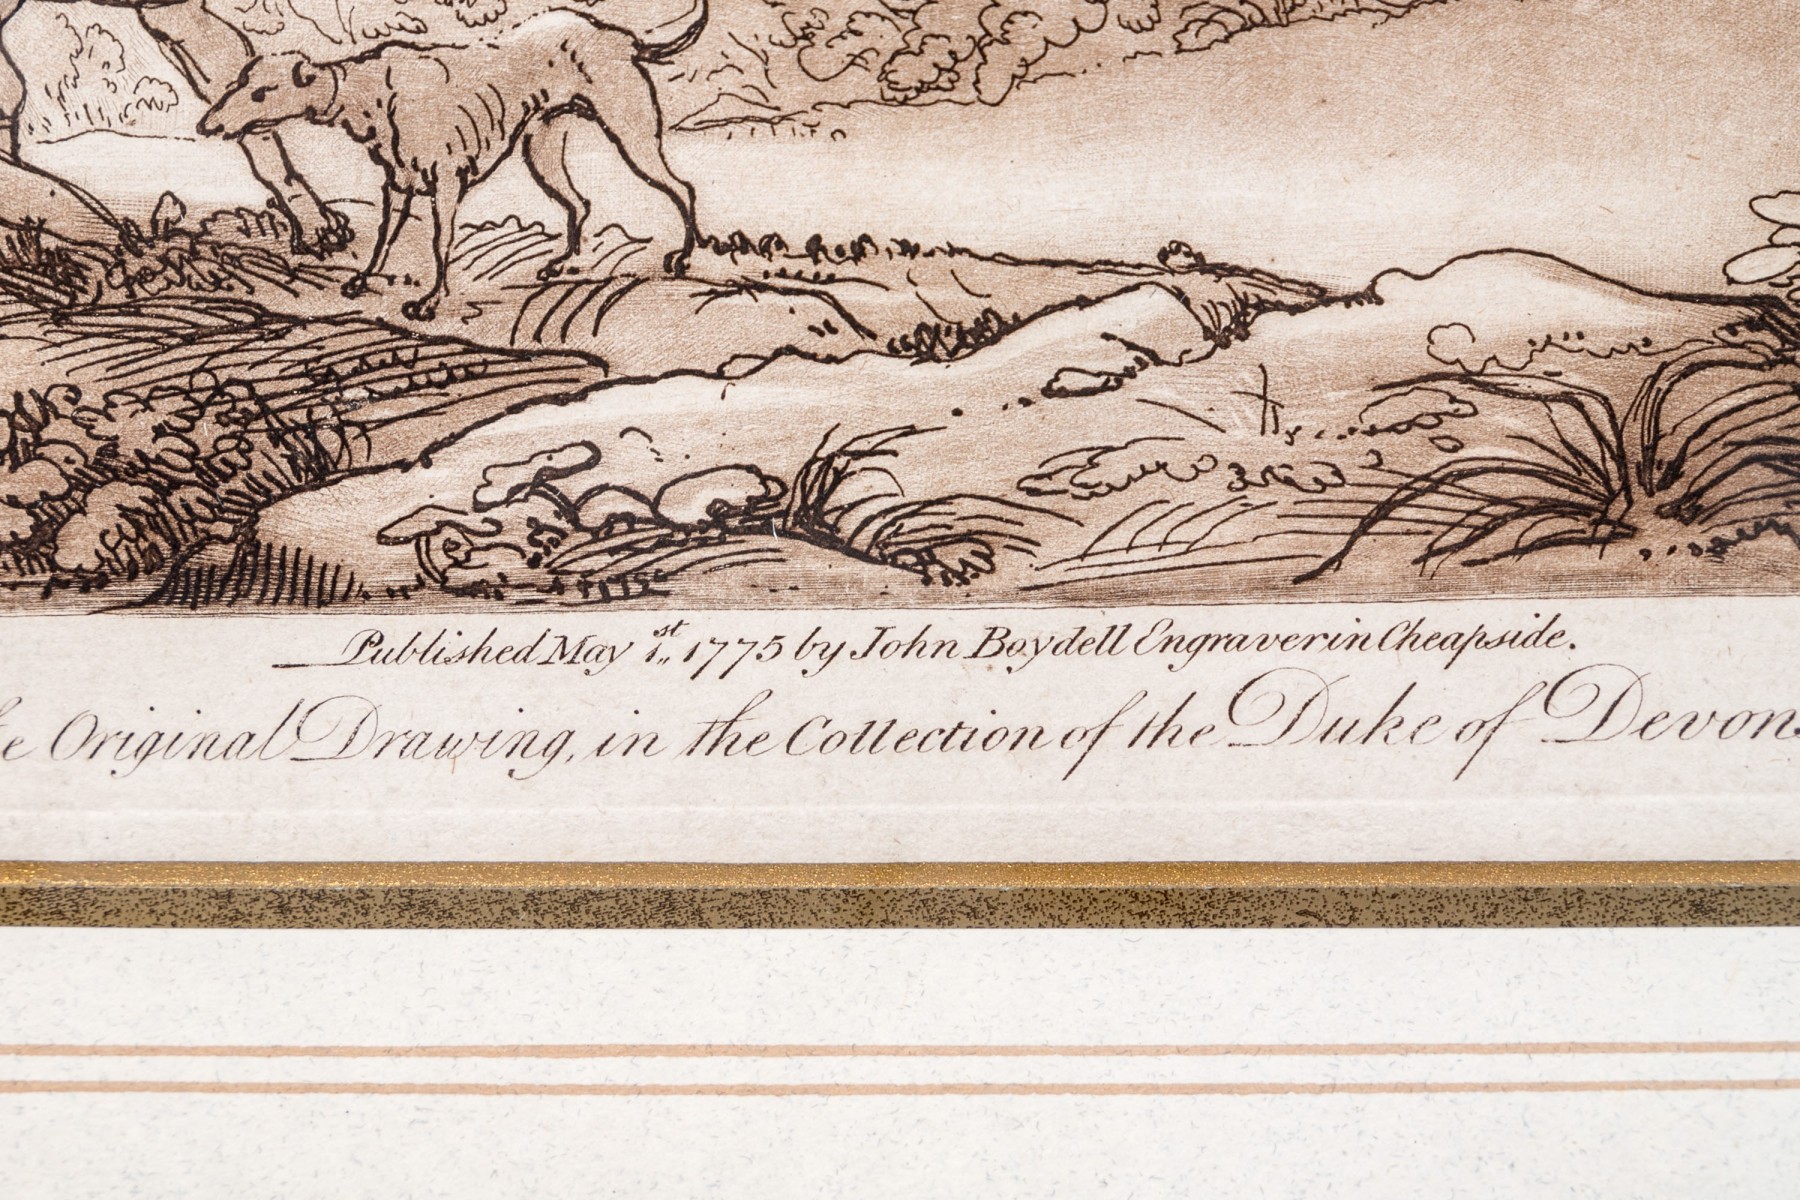 Published May 1st 1775 by John Boydell Engraver in Cheapside.
Original Drawing, in the Collection of the Duke of Devons